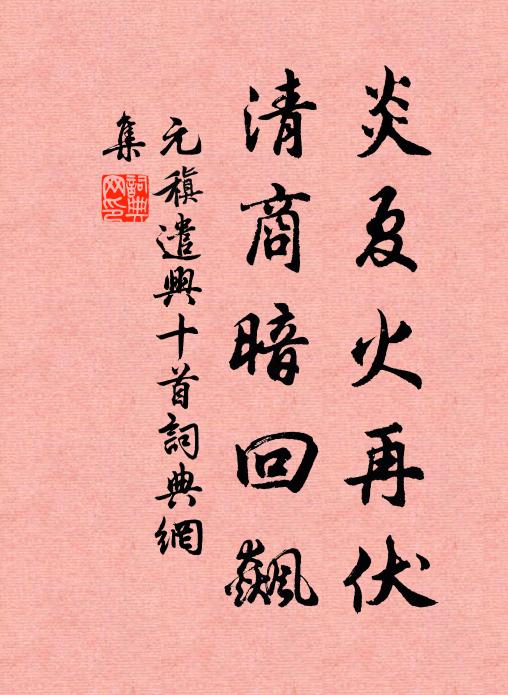 炎夏火再伏
清商暗回飆
元稹遣興十首詞典網
集
詞典
网印